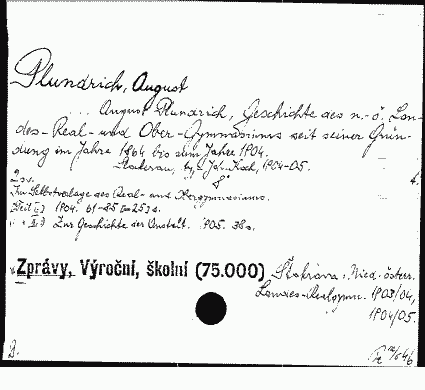 Plundrich, August
August Plundrich, Geschichte des n.-ö. Lan-
des-Real- und Ober-Gymnasiums seit seiner Grün-
dung im Jahre 1864 bis zum Jahre 1904.
Stockerau, Joh. Koch, 1904-05.
2 sv. 8° 4.
Im Selbstverlage des Real- und Obergymnasiums.
1904. 61-85 [=25] s.
II.) Zur Geschichte der Anstalt. 1905. 38 s.
Zprávy, Výroční, školní (75.000) Štokrava. Nied. österr.
Landes-Realgymn. 1903/04,
1904/05.